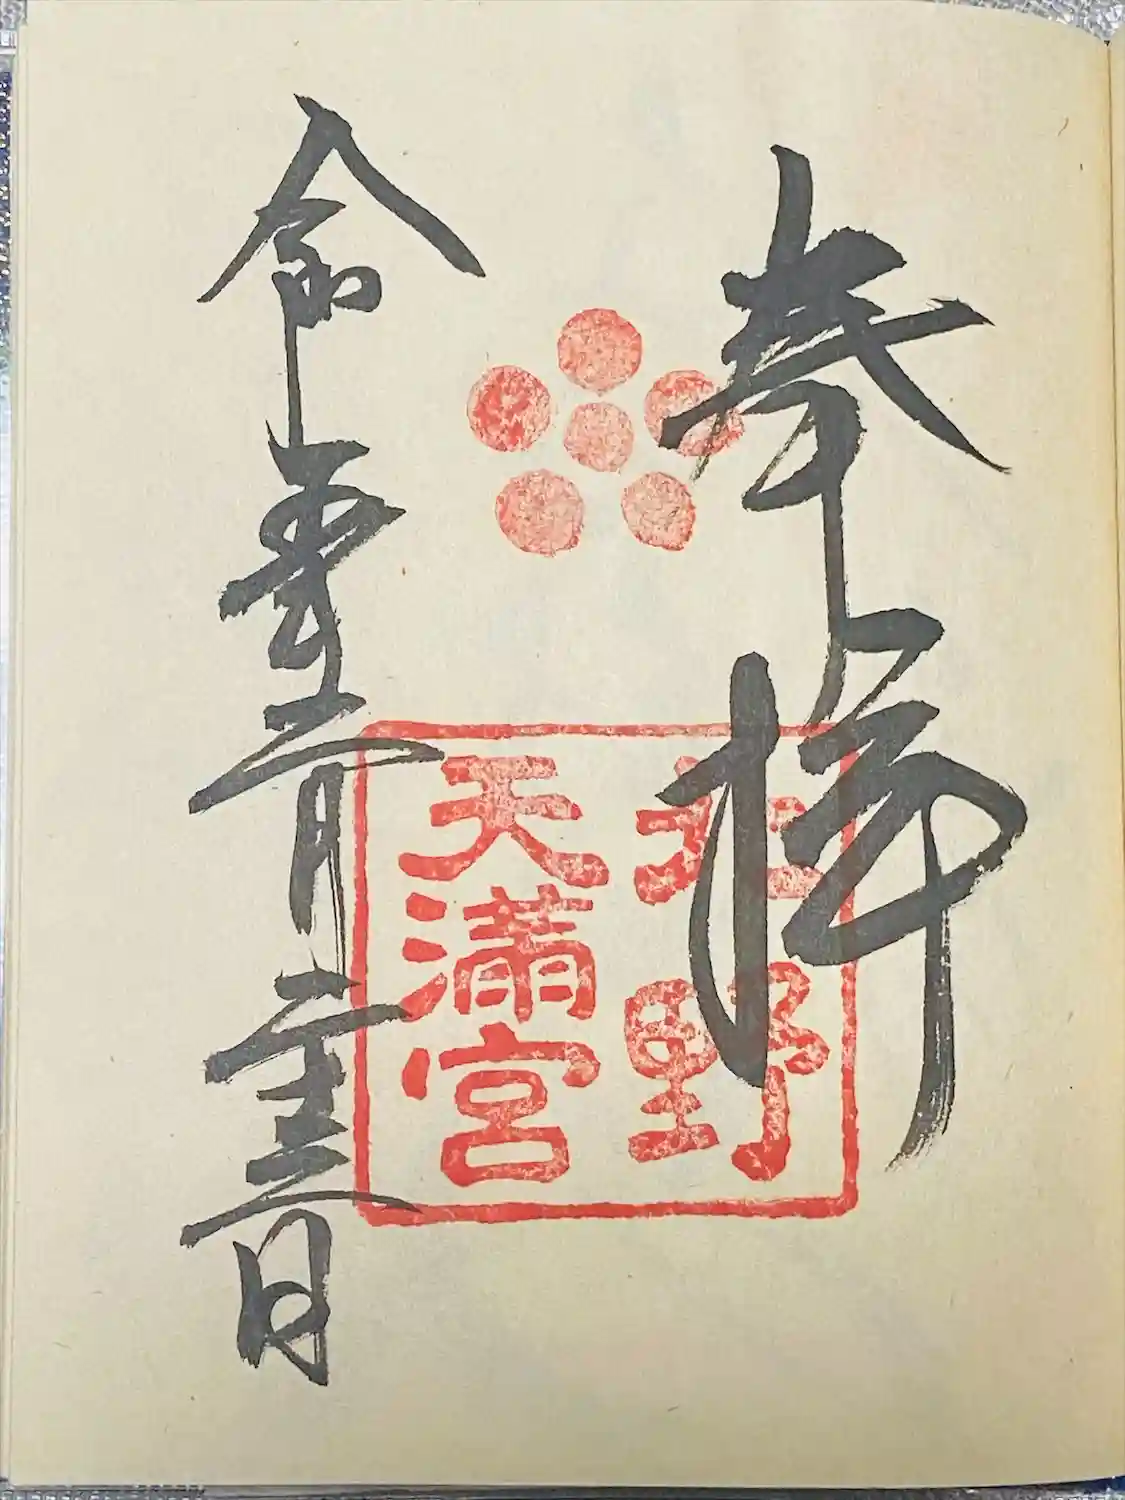 奉拝
北野
天滿宮
令和五年二月二十三日